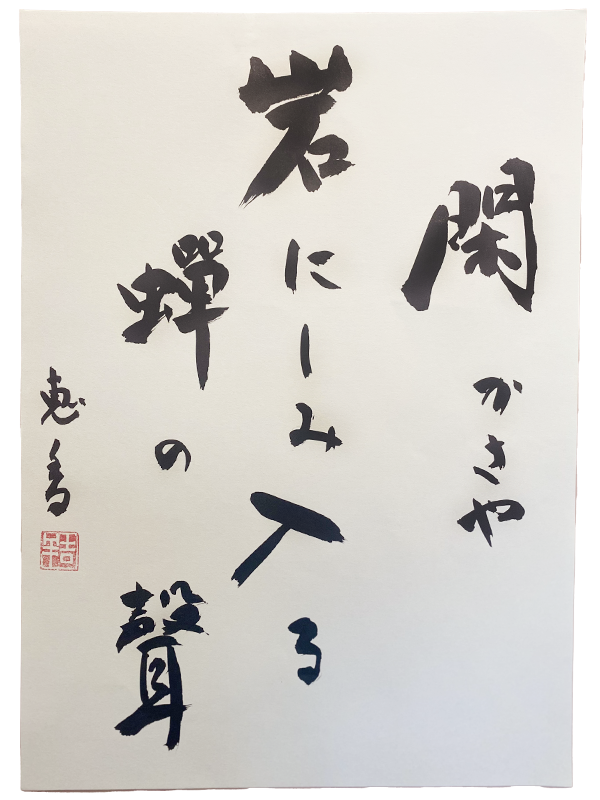 閑かさや
岩にしみ入る
蝉の聲
恵香